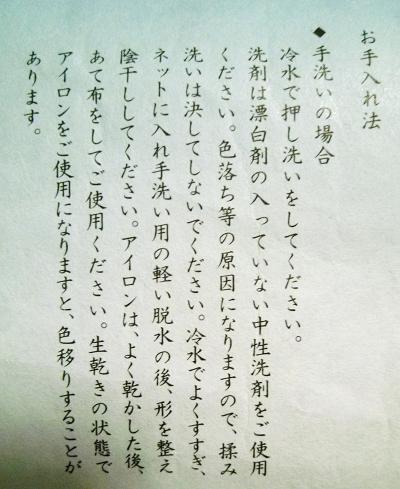 お手入れ法
◆手洗いの場合
冷水で押し洗いをしてください。
洗剤は漂白剤の入っていない中性洗剤をご使用
ください。色落ち等の原因になりますので、揉み
洗いは決してしないでください。冷水でよくすすぎ、
ネットに入れ手洗い用の軽い脱水の後、形を整え
陰干ししてください。アイロンは、よく乾かした後、
あて布をしてご使用ください。生乾きの状態で
アイロンをご使用になりますと、色移りすることが
あります。